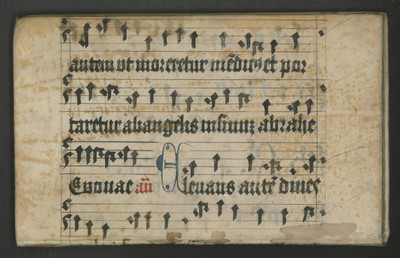 autem ut moreretur mēdicꝰ et por
taretur ab angelis in sinuꝫ abrahe
Euouae añ Eleuans autē diues